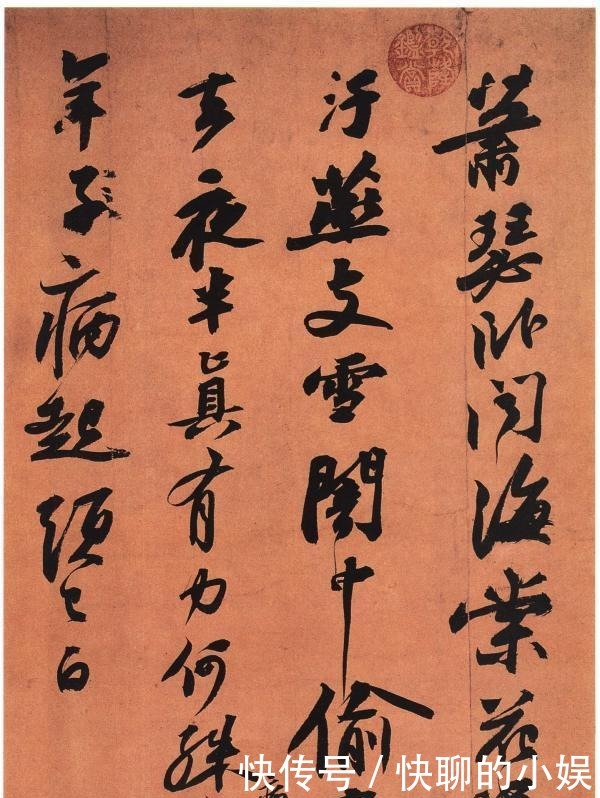 蕭瑟卧聞海棠花
汙燕支雪闇中偷
去夜半真有力何殊
年子病起頭已白
乾隆鑑賞
快传号 / 快聊的小娱